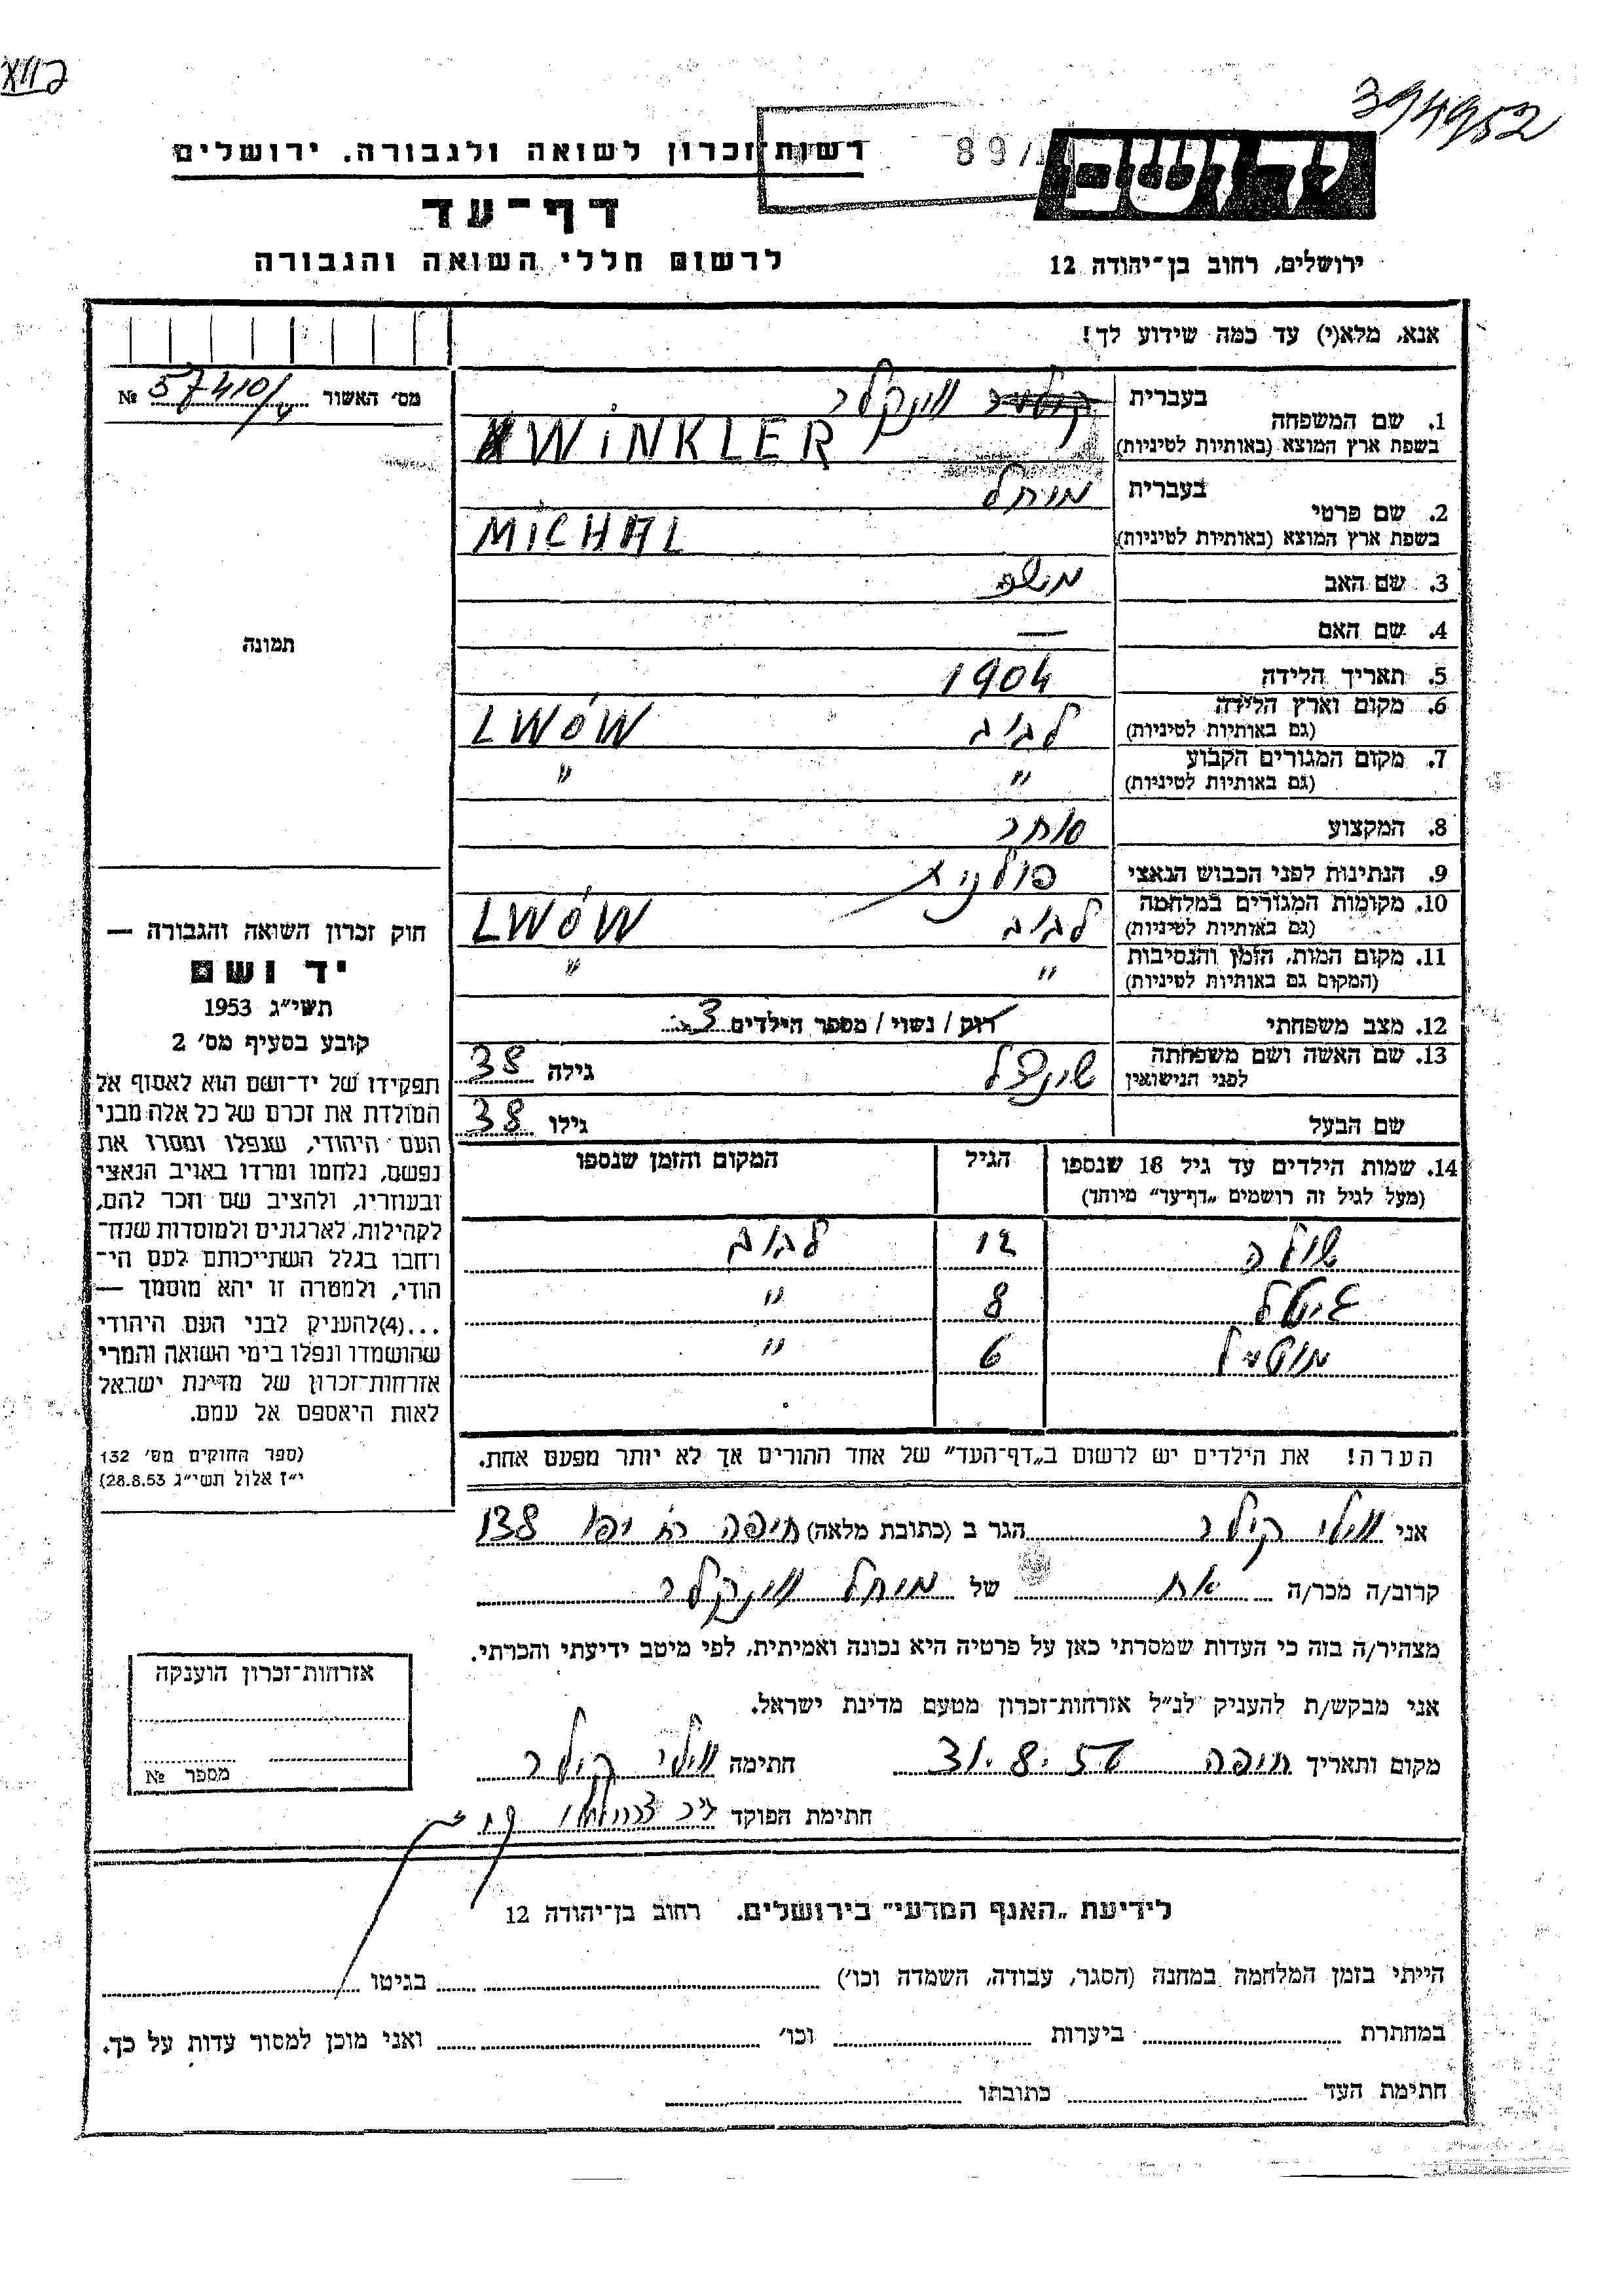 394952
רשות־זכרון לשואה ולגבורה. ירושלים
89
דף־עד
לרשום חללי השואה והגבורה
ירושלים, רחוב בן־יהודה 12
אנא, מלא(י) עד כמה שידוע לך!
מס׳ האשור 57410/ №
1. שם המשפחה בעברית ווינקלר
בשפת ארץ המוצא (באותיות לטיניות) WiNKLER
2. שם פרטי בעברית מיחל
בשפת ארץ המוצא (באותיות לטיניות) MiCHAL
3. שם האב משה
4. שם האם —
5. תאריך הלידה 1904
6. מקום וארץ הלידה (גם באותיות לטיניות) לבוב LWÓW
7. מקום המגורים הקבוע (גם באותיות לטיניות) " "
8. המקצוע סוחר
9. הנתינות לפני הכבוש הנאצי פולנית
10. מקומות המגורים במלחמה (גם באותיות לטיניות) לבוב LWÓW
11. מקום המות, הזמן והנסיבות (המקום גם באותיות לטיניות) " "
12. מצב משפחתי רוק / נשוי / מספר הילדים 3
13. שם האשה ושם משפחתה לפני הנישואין שינדל גילה 38
שם הבעל גילו 38
14. שמות הילדים עד גיל 18 שנספו (מעל לגיל זה רושמים „דף־עד״ מיוחד) הגיל המקום והזמן שנספו
שולה 12 לבוב
גיטל 8 "
מוטל 6 "
הערה! את הילדים יש לרשום ב„דף־העד״ של אחד ההורים אך לא יותר מפעם אחת.
תמונה
חוק זכרון השואה והגבורה —
יד ושם
תשי״ג 1953
קובע בסעיף מס׳ 2
תפקידו של יד־ושם הוא לאסוף אל
המולדת את זכרם של כל אלה מבני
העם היהודי, שנפלו ומסרו את
נפשם, נלחמו ומרדו באויב הנאצי
ובעוזריו, ולהציב שם וזכר להם,
לקהילות, לארגונים ולמוסדות שנח־
רחבו בגלל השתייכותם לעם הי־
הודי, ולמטרה זו יהא מוסמך —
...(4)להעניק לבני העם היהודי
שהושמדו ונפלו בימי השואה והמרי
אזרחות־זכרון של מדינת ישראל
לאות היאספם אל עמם.
(ספר החוקים מס׳ 132
י״ז אלול תשי״ג 28.8.53)
אני ווילי קילר הגר ב (כתובת מלאה) חיפה רח יפו 138
קרוב/ה מכר/ה אח של מיחל ווינקלר
מצהיר/ה בזה כי העדות שמסרתי כאן על פרטיה היא נכונה ואמיתית, לפי מיטב ידיעתי והכרתי.
אני מבקש/ת להעניק לנ״ל אזרחות־זכרון מטעם מדינת ישראל.
מקום ותאריך חיפה 31.8.56 חתימה ווילי קילר
חתימת הפוקד
אזרחות־זכרון הוענקה
מספר №
לידיעת „האגף המדעי״ בירושלים. רחוב בן־יהודה 12
הייתי בזמן המלחמה במחנה (הסגר, עבודה, השמדה וכו׳) בגיטו
במחתרת ביערות וכו׳ ואני מוכן למסור עדות על כך.
חתימת העד כתובתו